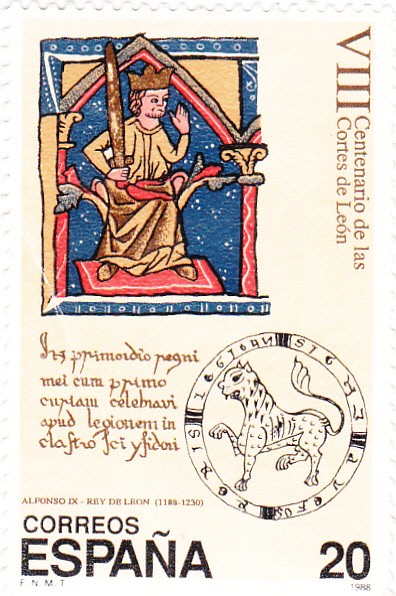 VIII Centenario de las
Cortes de León
In primordio regni
mei cum primo
curiam celebravi
apud legionem in
claſtro sci ysidori
ALFONSO IX - REY DE LEON (1188-1230)
CORREOS
ESPAÑA
20
F. N. M. T.
1988